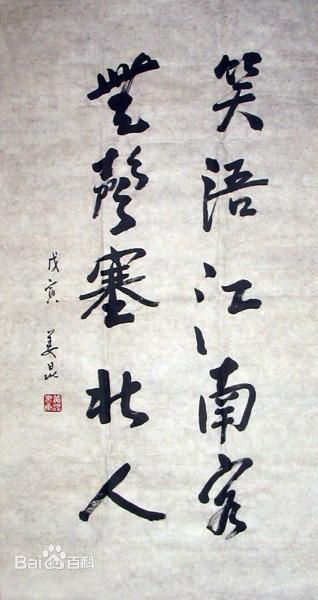 笑语江南客
無聲塞北人
戊寅 姜昆
Bai百科